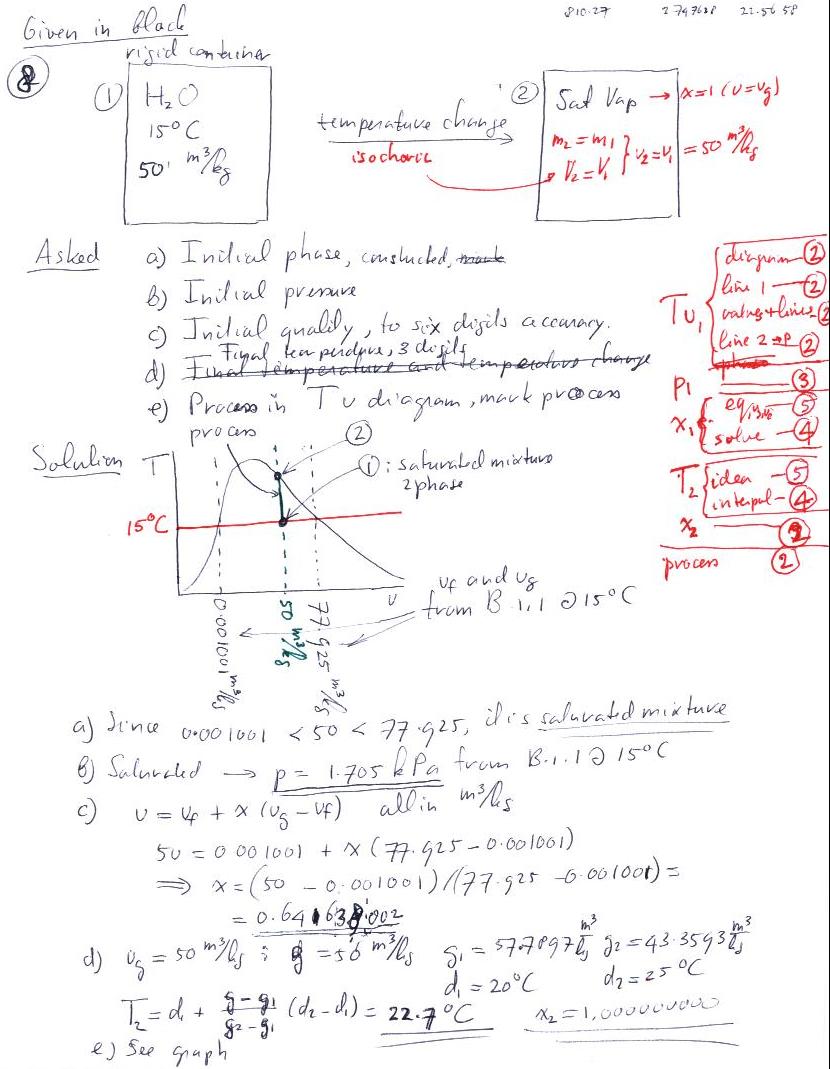 810.27 2797638 22.56 58
Given in black
rigid container
8
① H₂O
15°C
50 m³/kg
temperature change
isochoric
② Sat Vap → x=1 (v=vg)
m₂=m₁
V₂=V₁ } v₂=v₁ = 50 m³/kg
Asked a) Initial phase, constructed, mark
b) Initial pressure
c) Initial quality, to six digits accuracy.
Final temperature, 3 digits
d) Final temperature and temperature change
e) Process in Tv diagram, mark process
Tv₁ { diagram — ②
line 1 — ②
values+lines ②
line 2 ⇒ P ②
phase
P₁ ③
x₁ { eq ⑤
solve — ④
T₂ { idea — ⑤
interpol — ④
x₂
process ②
Solution T
process
②
①: saturated mixture
2 phase
15°C
v
0.001001 m³/kg
50 m³/kg
77.925 m³/kg
vf and vg
from B.1.1 @ 15°C
a) Since 0.001001 < 50 < 77.925, it is saturated mixture
b) Saturated → p = 1.705 kPa from B.1.1 @ 15°C
c) v = vf + x (vg – vf) all in m³/kg
50 = 0.001001 + x (77.925 – 0.001001)
⇒ x = (50 – 0.001001)/(77.925 – 0.001001) =
= 0.641638002
d) vg = 50 m³/kg : g = 50 m³/kg g₁ = 57.7897 m³/kg g₂ = 43.3593 m³/kg
d₁ = 20°C d₂ = 25°C
T₂ = d₁ + (g – g₁)/(g₂ – g₁) (d₂ – d₁) = 22.7°C x₂ = 1.000000000
e) See graph